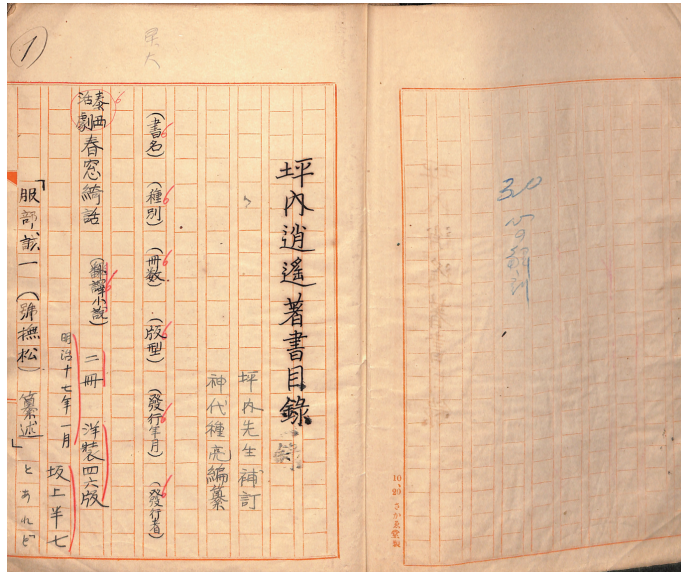 3.0
10、20 さかゑ堂製
1
坪內逍遙著書目錄
坪内先生補訂
神代種亮編纂
(書名) (種別) (冊数) (版型) (發行年月) (發行者)
泰西活劇 春窓綺話 (飜譯小説) 二冊 洋装四六版
明治十七年一月 坂上半七
「服部誠一(號撫松) 纂述」とあれど